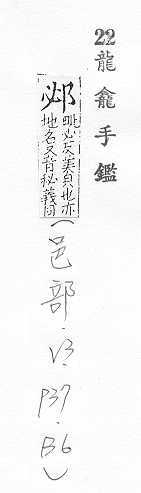 22龍龕手鑑
邲
毗必反美皃也亦
地名又音秘義同
(邑部.V3.P37.B6)